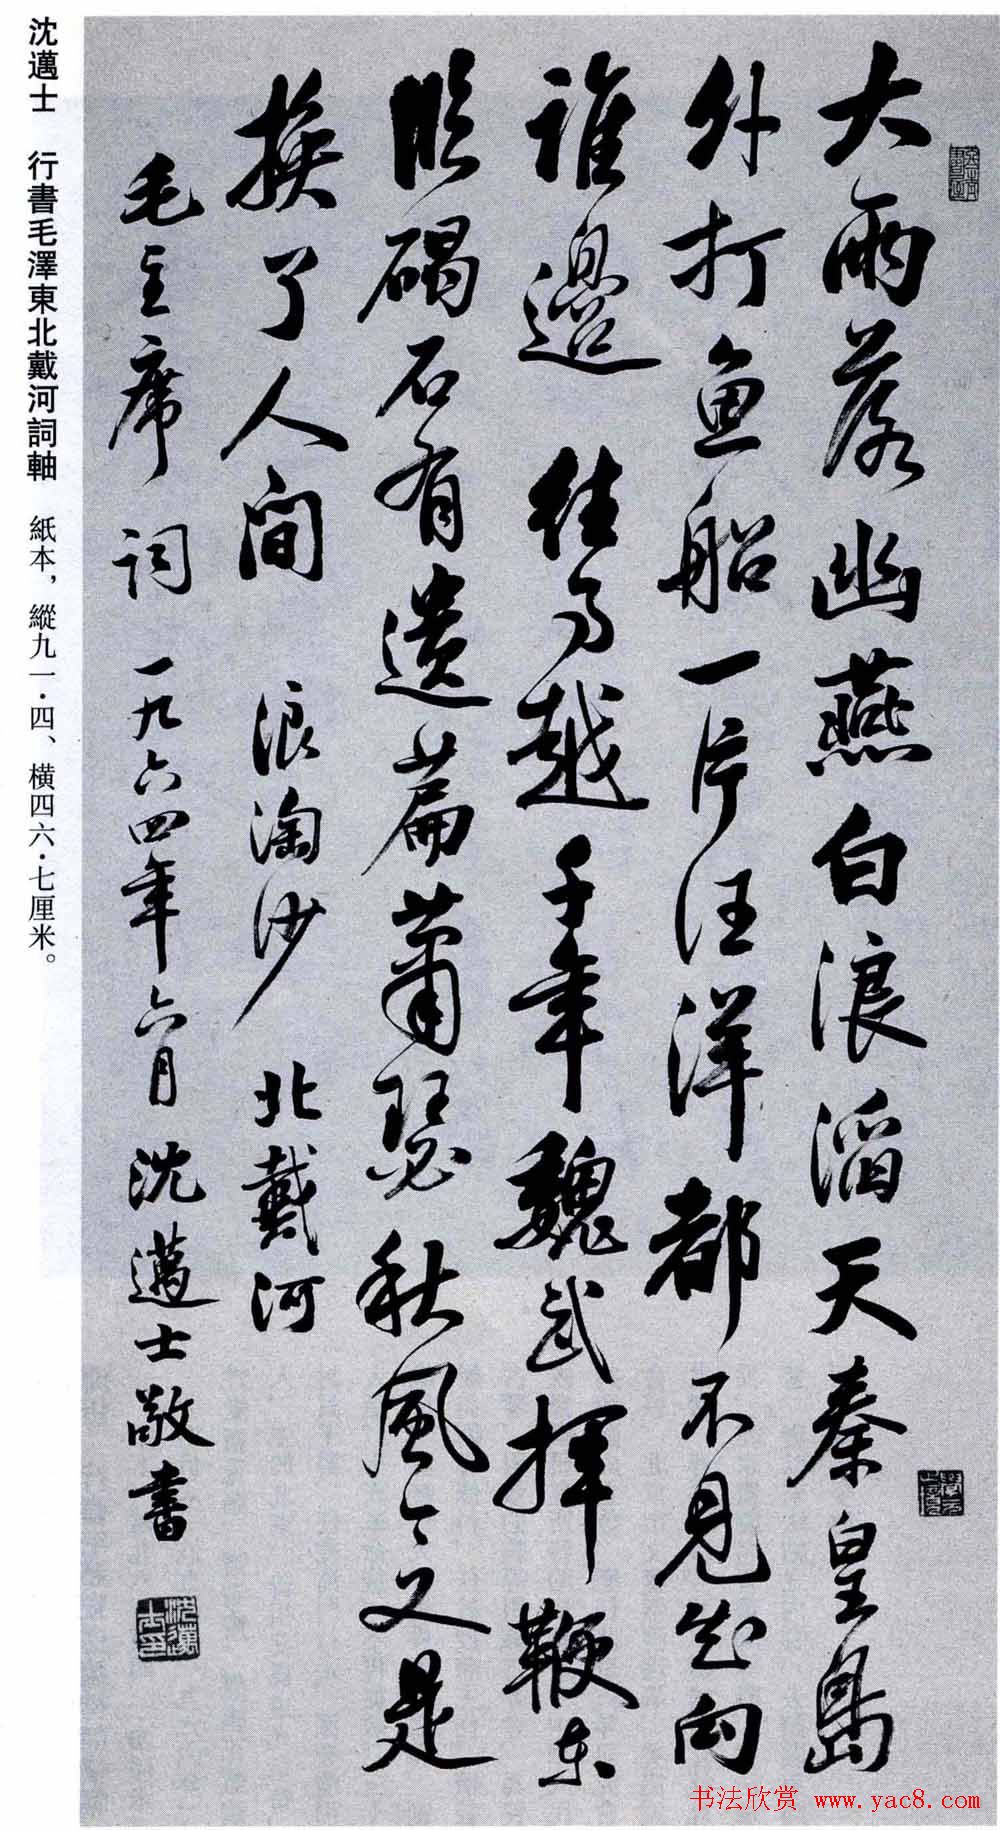 大雨落幽燕白浪滔天秦皇島
外打鱼船一片汪洋都不見知向
誰邊 往事越千年魏武揮鞭东
临碣石有遗篇蕭瑟秋風今又是
换了人间 浪淘沙 北戴河
毛主席词 一九六四年六月沈邁士敬書
沈邁士印
沈邁士 行書毛澤東北戴河詞軸 紙本，縱九一·四、橫四六·七厘米。
书法欣赏 www.yac8.com